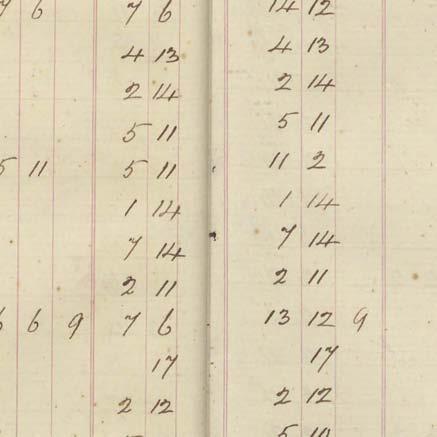 7 6 7 6 14 12
4 13 4 13
2 14 2 14
5 11 5 11
5 11 5 11 11 2
1 14 1 14
7 14 7 14
2 11 2 11
6 6 9 7 6 13 12 9
17 17
2 12 2 12
5 10